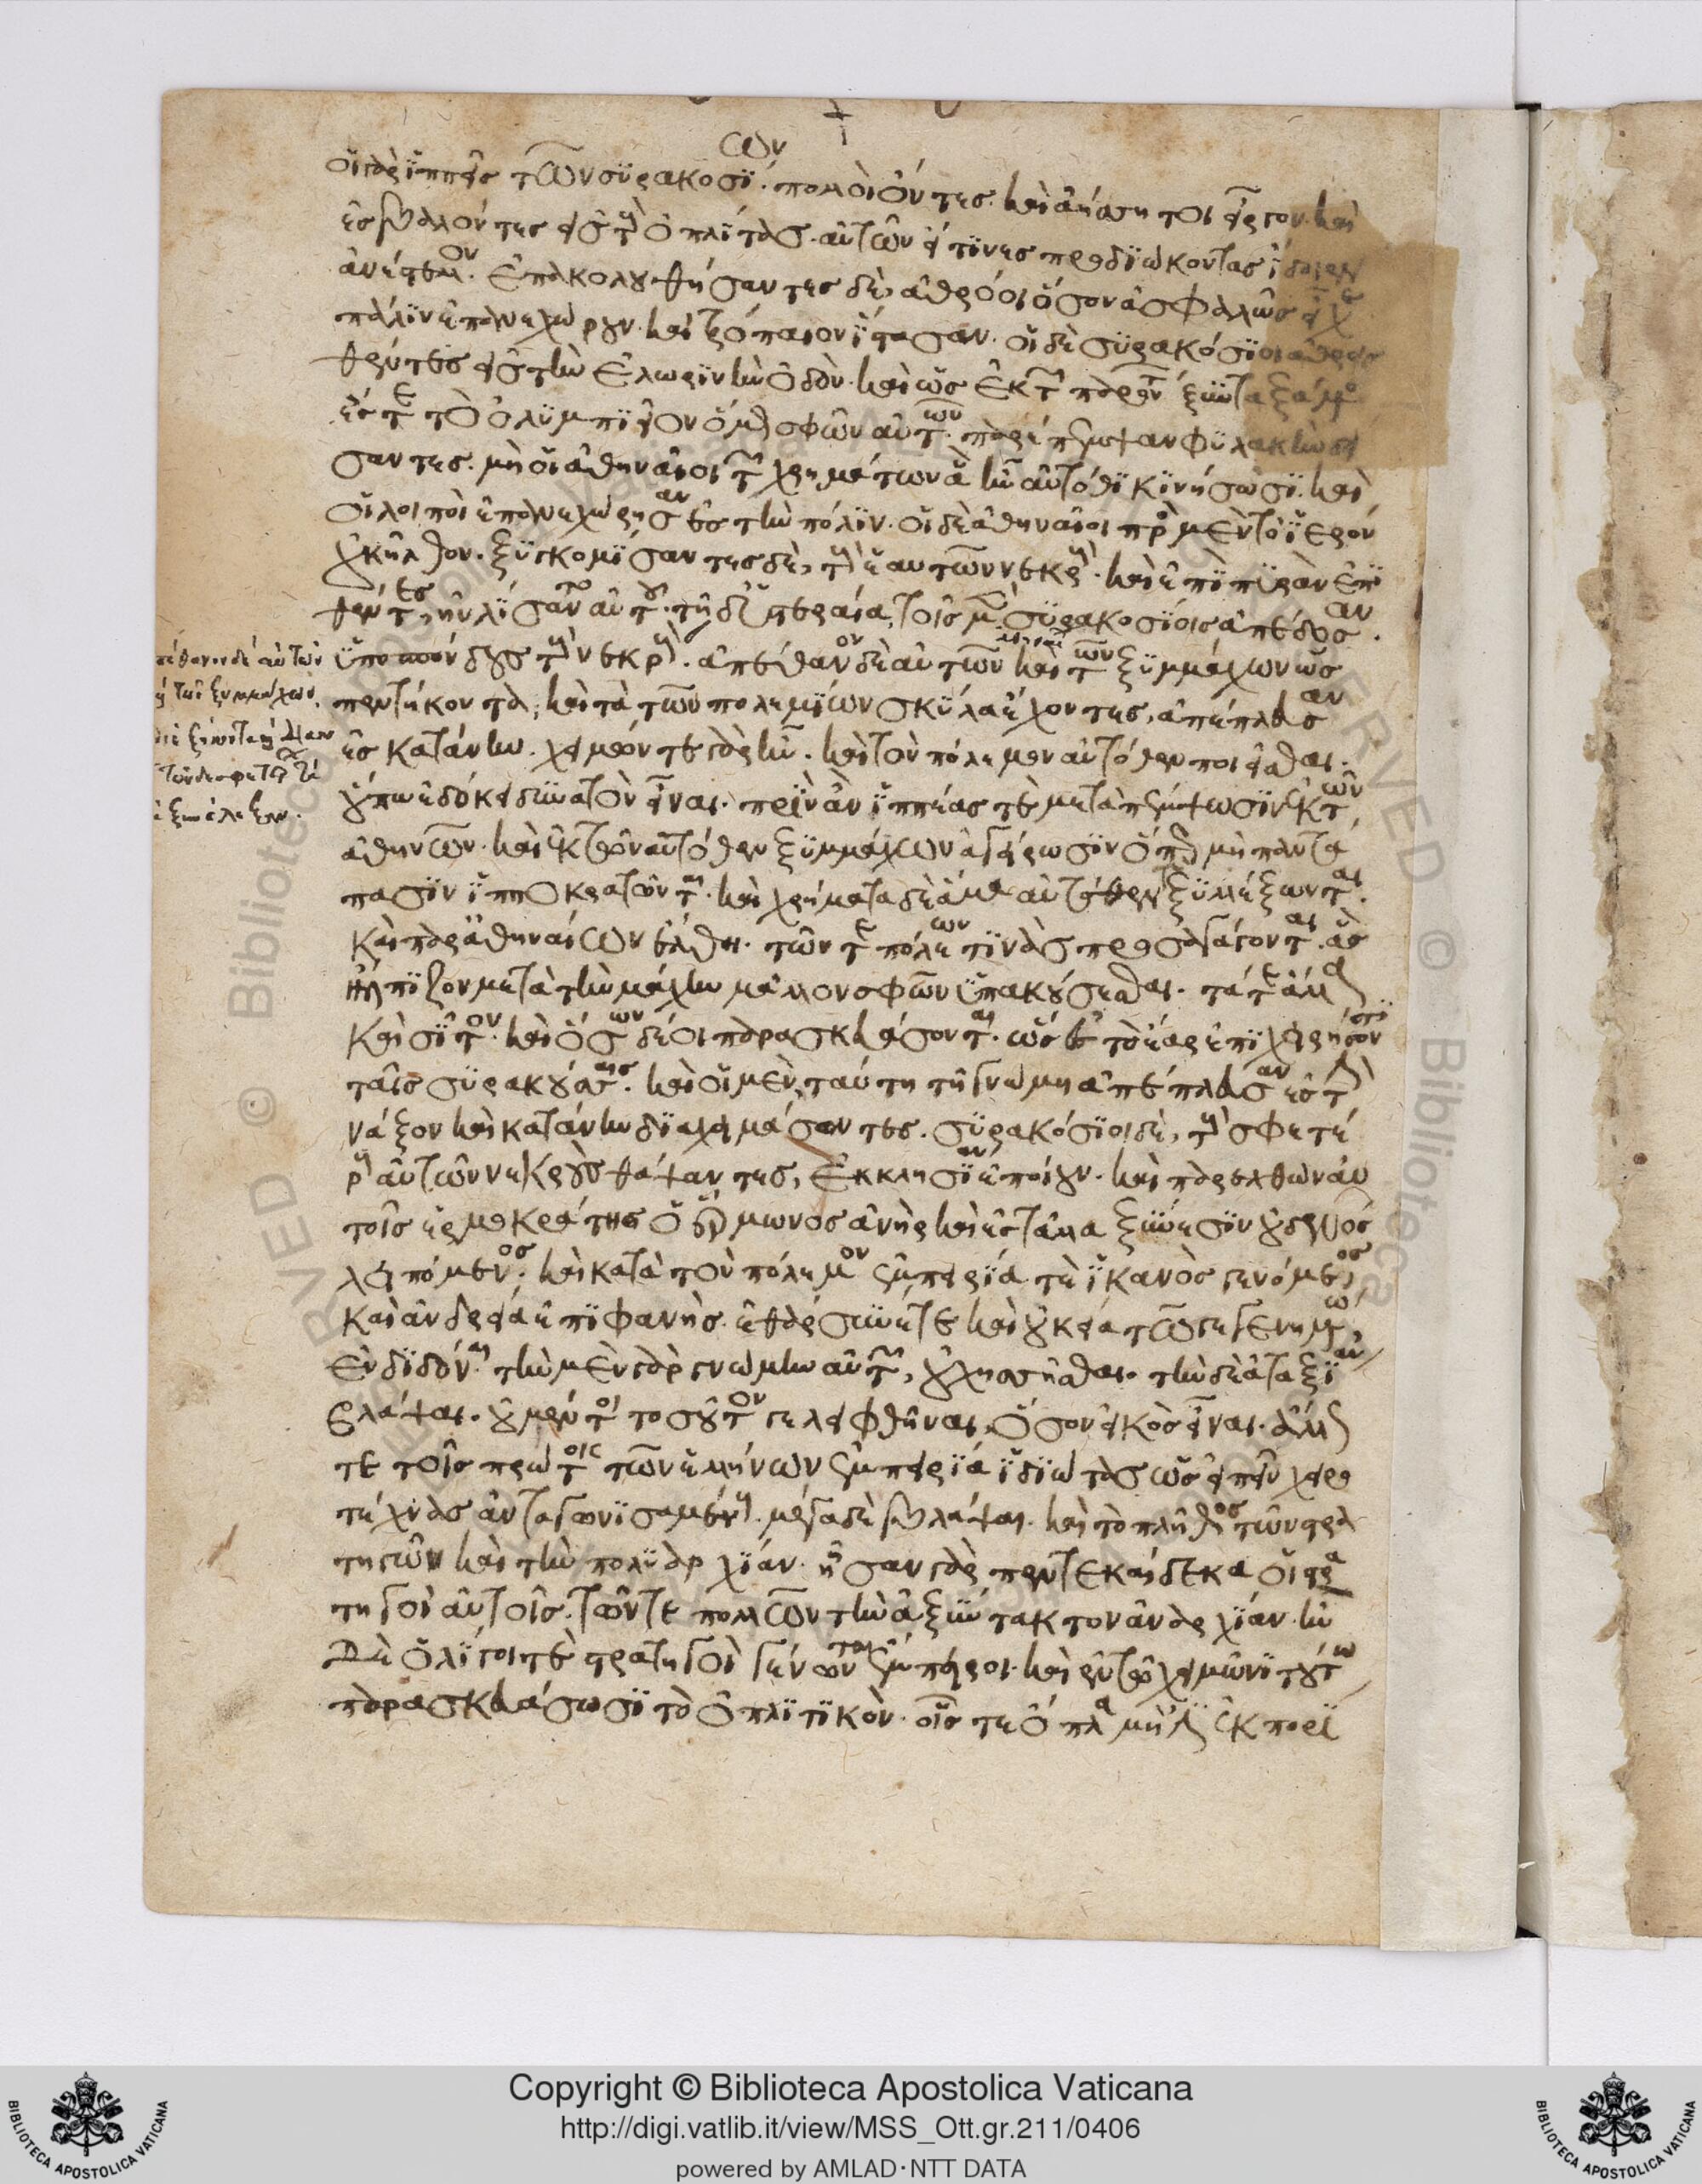 οἱ γὰρ ἱππῆς τῶν συρακοσίων. πολλοὶ ὄντες. καὶ ἀήσσητοι εἶργον. καὶ
ἐσβαλόντες ἐς τοὺς ὁπλίτας. αὐτῶν εἴ τινες προδιώκοντας ἴδοιεν
ἀνέστελλον. ἐπακολουθήσαντες δὲ, ἀθρόοι ὅσον ἀσφαλῶς εἶχε
πάλιν ἐπανεχώρουν. καὶ τροπαῖον ἵστασαν. οἱ δὲ συρακόσιοι ἀθροι
σθέντες ἐς τὴν ἑλωρινὴν ὁδὸν. καὶ ὡς ἐκ τῶν παρόντων ξυνταξάμενοι
ἔς τε τὸ ὀλυμπιεῖον ὅμως σφῶν αὐτῶν. παρέπεμψαν φυλακὴν δεί
σαντες. μὴ οἱ ἀθηναῖοι τῶν χρημάτων ἃ ἦν αὐτόθι κινήσωσι. καὶ
οἱ λοιποὶ ἐπανεχώρησαν ἐς τὴν πόλιν. οἱ δὲ ἀθηναῖοι πρὸς μὲν τὸ ἱερὸν
οὐκ ἦλθον. ξυγκομίσαντες δὲ, τοὺς ἑαυτῶν νεκροὺς. καὶ ἐπὶ πυρὰν ἐπι
θέντες, ηὐλίσαντο αὐτοῦ. τῇ δ' ὑστεραίᾳ, τοῖς μὲν συρακοσίοις ἀπέδοσαν.
ὑποσπόνδους τοὺς νεκροὺς. ἀπέθανον δὲ αὐτῶν καὶ τῶν ξυμμάχων ὡς
πεντήκοντα, καὶ τὰ τῶν πολεμίων σκῦλα ἔχοντες, ἀπέπλευσαν
ἐς κατάνην. χειμών τε γὰρ ἦν. καὶ τὸν πόλεμον αὐτόθεν ποιεῖσθαι.
οὔπω ἐδόκει δυνατὸν εἶναι. πρὶν ἂν ἱππέας τε μεταπέμψωσιν ἐκ τῶν
ἀθηνῶν. καὶ ἐκ τῶν αὐτόθεν ξυμμάχων ἀγείρωσιν ὅπως μὴ παντά
πασιν ἱπποκρατῶνται. καὶ χρήματα δὲ ἅμα αὐτόθεν ξυλλέξωνται.
καὶ παρ' ἀθηναίων ἔλθῃ. τῶν τε πόλεων τινὰς προσαγάγονται. ἃς
ἤλπιζον μετὰ τὴν μάχην μᾶλλον σφῶν ὑπακούσεσθαι. τά τε ἄλλα
καὶ σῖτον. καὶ ὅσων δέοι παρασκευάσονται. ὡς ἐς τὸ ἔαρ ἐπιχειρήσοντες
ταῖς συρακούσαις. καὶ οἱ μὲν, ταύτῃ τῇ γνώμῃ ἀπέπλευσαν ἐς τὴν
νάξον καὶ κατάνην διαχειμάσαντες. συρακόσιοι δὲ, τοὺς σφετέ
ρους αὐτῶν νεκροὺς θάψαντες, ἐκκλησίαν ἐποίουν. καὶ παρελθὼν αὐ
τοῖς ἑρμοκράτης ὁ ἕρμωνος ἀνὴρ καὶ ἐς τἆλλα ξύνεσιν οὐδενὸς
λειπόμενος. καὶ κατὰ τὸν πόλεμον ἐμπειρίᾳ τε ἱκανὸς γενόμενος
καὶ ἀνδρείᾳ ἐπιφανὴς. ἐθάρσυνέ τε καὶ οὐκ εἴα τῷ γεγενημένῳ
ἐνδιδόναι. τὴν μὲν γὰρ γνώμην αὐτῶν, οὐχ ἡσσῆσθαι. τὴν δὲ ἀταξίαν
βλάψαι. οὐ μέντοι τοσοῦτον γε λειφθῆναι, ὅσον εἰκὸς εἶναι. ἄλλως
τε τοῖς πρώτοις τῶν ἑλλήνων ἐμπειρίᾳ ἰδιώτας ὡς εἰπεῖν χειρο
τέχνας ἀνταγωνισαμένους. μέγα δὲ βλάψαι. καὶ τὸ πλῆθος τῶν στρα
τηγῶν καὶ τὴν πολυαρχίαν. ἦσαν γὰρ πεντεκαίδεκα οἱ στρα
τηγοὶ αὐτοῖς. τῶν τε πολλῶν τὴν ἀξύντακτον ἀναρχίαν. ἢν
δὲ ὀλίγοι τε στρατηγοὶ γένωνται ἔμπειροι. καὶ ἐν τῷ χειμῶνι τούτῳ
παρασκευάσωσι τὸ ὁπλιτικὸν. οἷς τε ὅπλα μή ἐστιν ἐκπορί